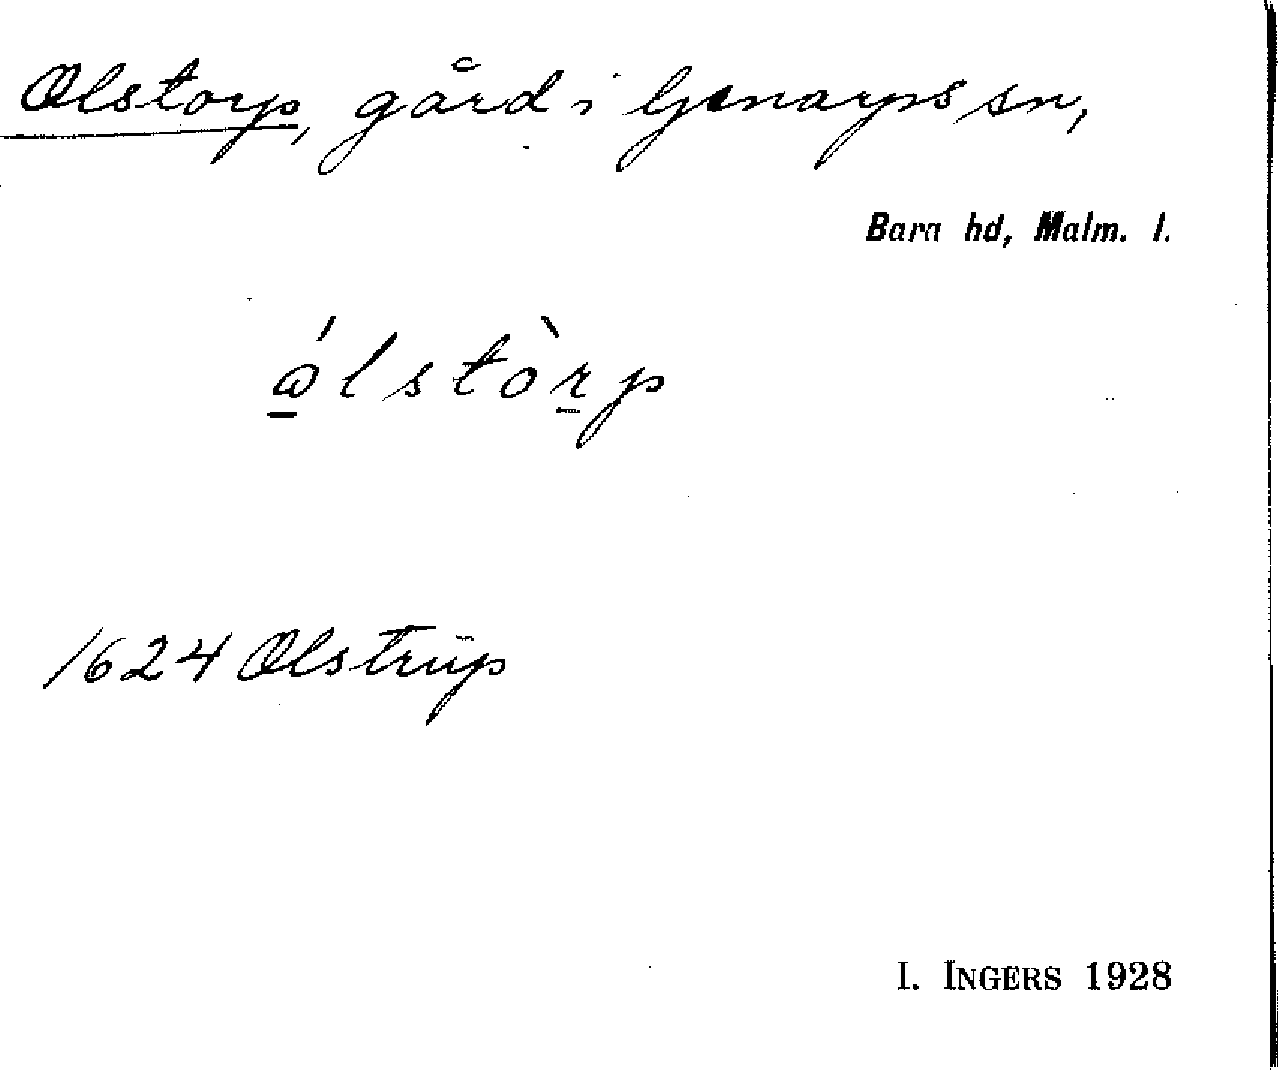 Olstorp, gård i Genarps sn,
Bara hd, Malm. l.
ólstòrp
1624 Olstrup
I. INGERS 1928